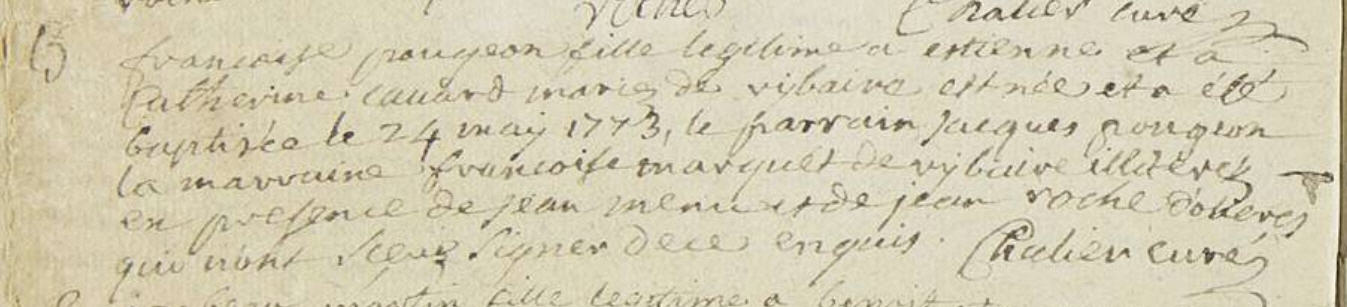 Chalier curé
françoise pougeon fille legitime a estienne et a
Catherine cauard mariés de vibaire est née et a été
baptisée le 24 may 1773, le parrain jacques pougeon
la marraine françoise marquet de vybaire illiterés
en presence de jean menu et de jean roche d'oueres
qui n'ont sceu signer de ce enquis. Chalier curé
martin fille legitime a benoit